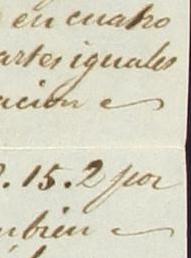 en cuatro
artes iguales
acion
2.15.2 por
mbien